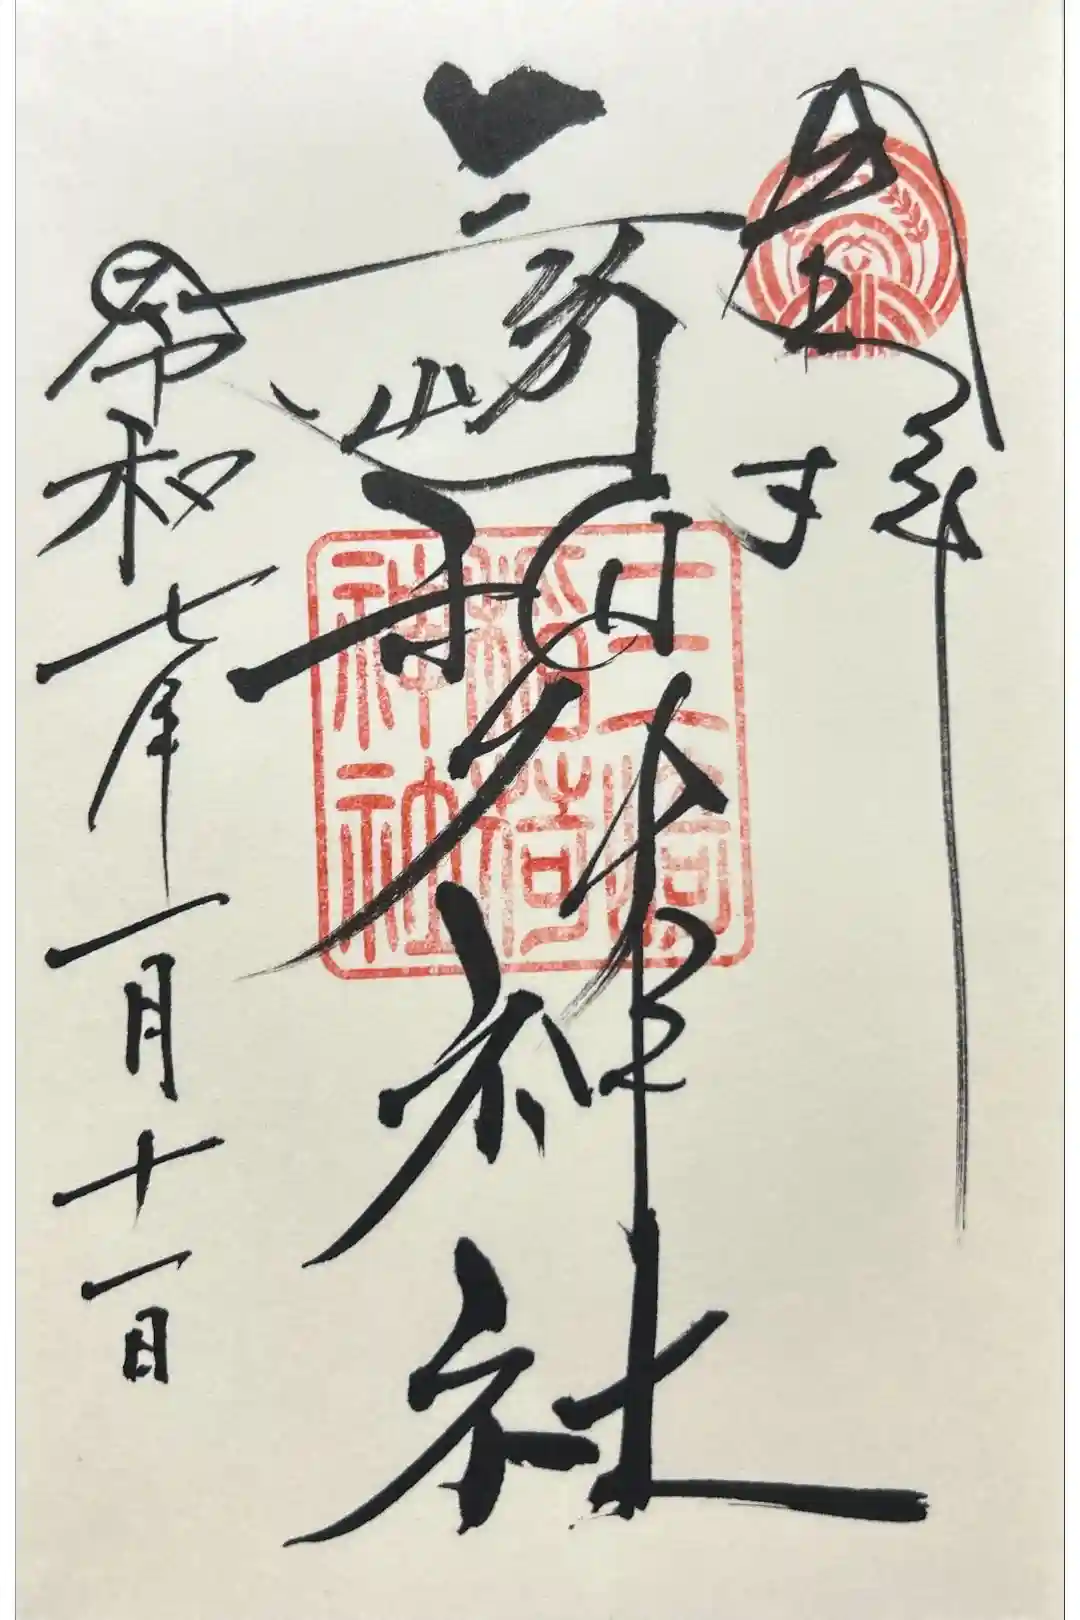 三崎稲荷神社
令和七年一月十一日
三崎
稲荷
神社